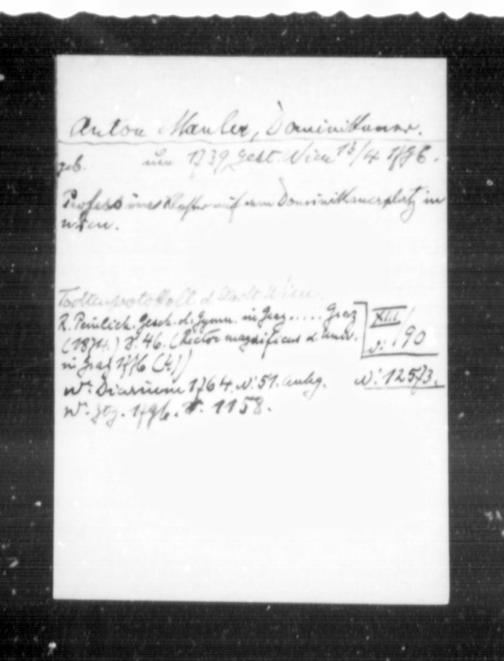 Anton Mauler, Dominikaner.
geb. um 1739 gest. Wien 13/4 1796.
Professor im Kloster auf dem Dominikanerplatz in
Wien.
Todtenprotokoll d. Stadt Wien.
R. Peinlich. Gesch. d. Gymn. in Graz.... Graz
(1874.) S. 46. (Rector magnificus d. Univ.
in Graz 1776 (?))
XLI/
N: 90
Wr. Diarium 1764. N: 51. Anhg.
N: 12573.
Wr. Ztg. 1796. S. 1158.